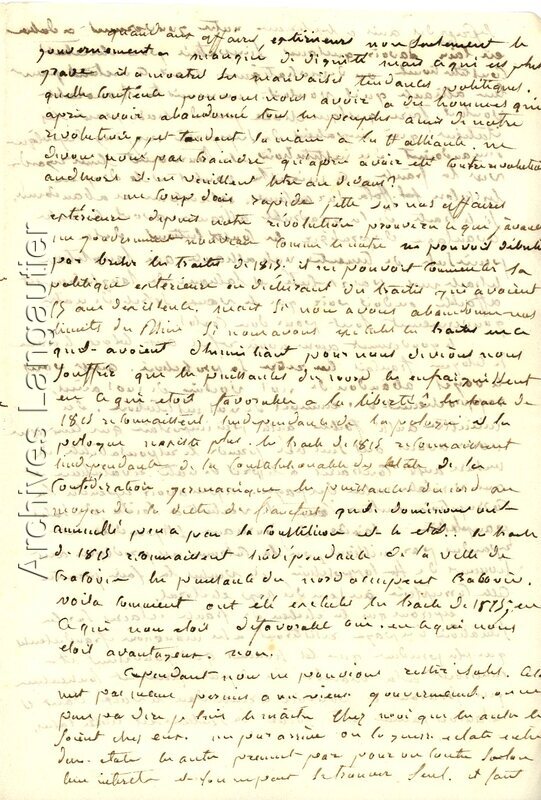 quant aux affaires extérieures non seulement le
gouvernement a manqué de dignité mais ce qui est plus
grave il a montré ses mauvaises tendances politiques.
quelle confiance pouvons nous avoir a des hommes qui
après avoir abandonné tous les peuples amis de notre
révolution, tendent la main a la alliance. ne
devons nous pas craindre qu'après avoir été contrerevolution
au dehors il ne veuillent l'être au dedans?
un coup d'oeil rapide jetté sur nos affaires
extérieures depuis notre révolution prouvera ce que j'avance
un gouvernement nouveau comme le notre ne pouvoit débuter
par briser les traités de 1815. il ne pouvoit commencer sa
politique extérieure en déchirant des traités qui avoient
15 ans d'existence. mais si nous avons abandonné nos
limites du Rhin si nous avons exécuté les traités en ce
qu'ils avoient d'humiliant pour nous devions nous
souffrir que les puissances du nord les enfraignissent
en ce qui etoit favorable a la liberté? les traités de
1815 reconnaissent indépendance de la pologne et la
pologne n'existe plus. les traités de 1815 reconnaissent
indépendance de la des états de la
Confédération germanique les puissances du nord au
moyen de la diète de francfort qu'ils dominent ont
annullé peu a peu la constitution de ces états. les traités
de 1815 reconnaissent indépendance de la ville de
Cracovie les puissances du nord occupent Cracovie.
voila comment ont été exécutés les traités de 1815, en
ce qui nous etoit défavorable oui. en ce qui nous
etoit avantageux. non.
Cependant nous ne pouvions rester isolés. Cela
n'est pas même permis a un vieux gouvernement. on ne
peut pas dire je suis le maître chez moi que les autres le
soient chez eux. on la guerre eclate entre
deux états les autres prennent part pour ou contre selon
leur intérêts et l'on ne peut se trouver seul. il faut